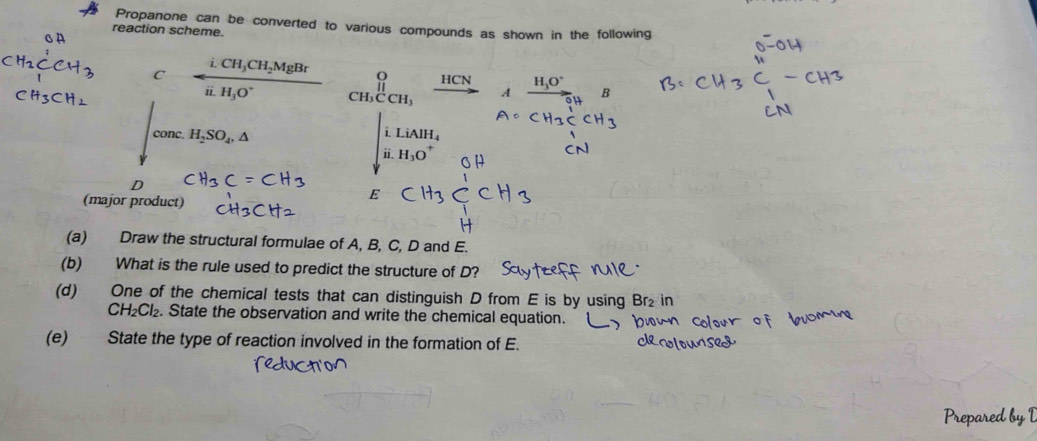 Propanone can be converted to various compounds as shown in the following
reaction scheme.
OH
CH₂CCH₃
CH₃CH₂
C
i. CH₃CH₂MgBr
ii. H₃O⁺
O
CH₃CCH₃
HCN
A
H₃O⁺
B
A = CH₃CCH₃
OH
CN
O-OH
B: CH₃C-CH₃
CN
conc. H₂SO₄, Δ
i. LiAlH₄
ii. H₃O⁺
D
(major product)
CH₃C=CH₃
CH₃CH₂
E
OH
CH₃CCH₃
H
(a) Draw the structural formulae of A, B, C, D and E.
(b) What is the rule used to predict the structure of D? Saytzeff rule.
(d) One of the chemical tests that can distinguish D from E is by using Br₂ in
CH₂Cl₂. State the observation and write the chemical equation. ↳ brown colour of bromine
decolourised
(e) State the type of reaction involved in the formation of E.
reduction
Prepared by D